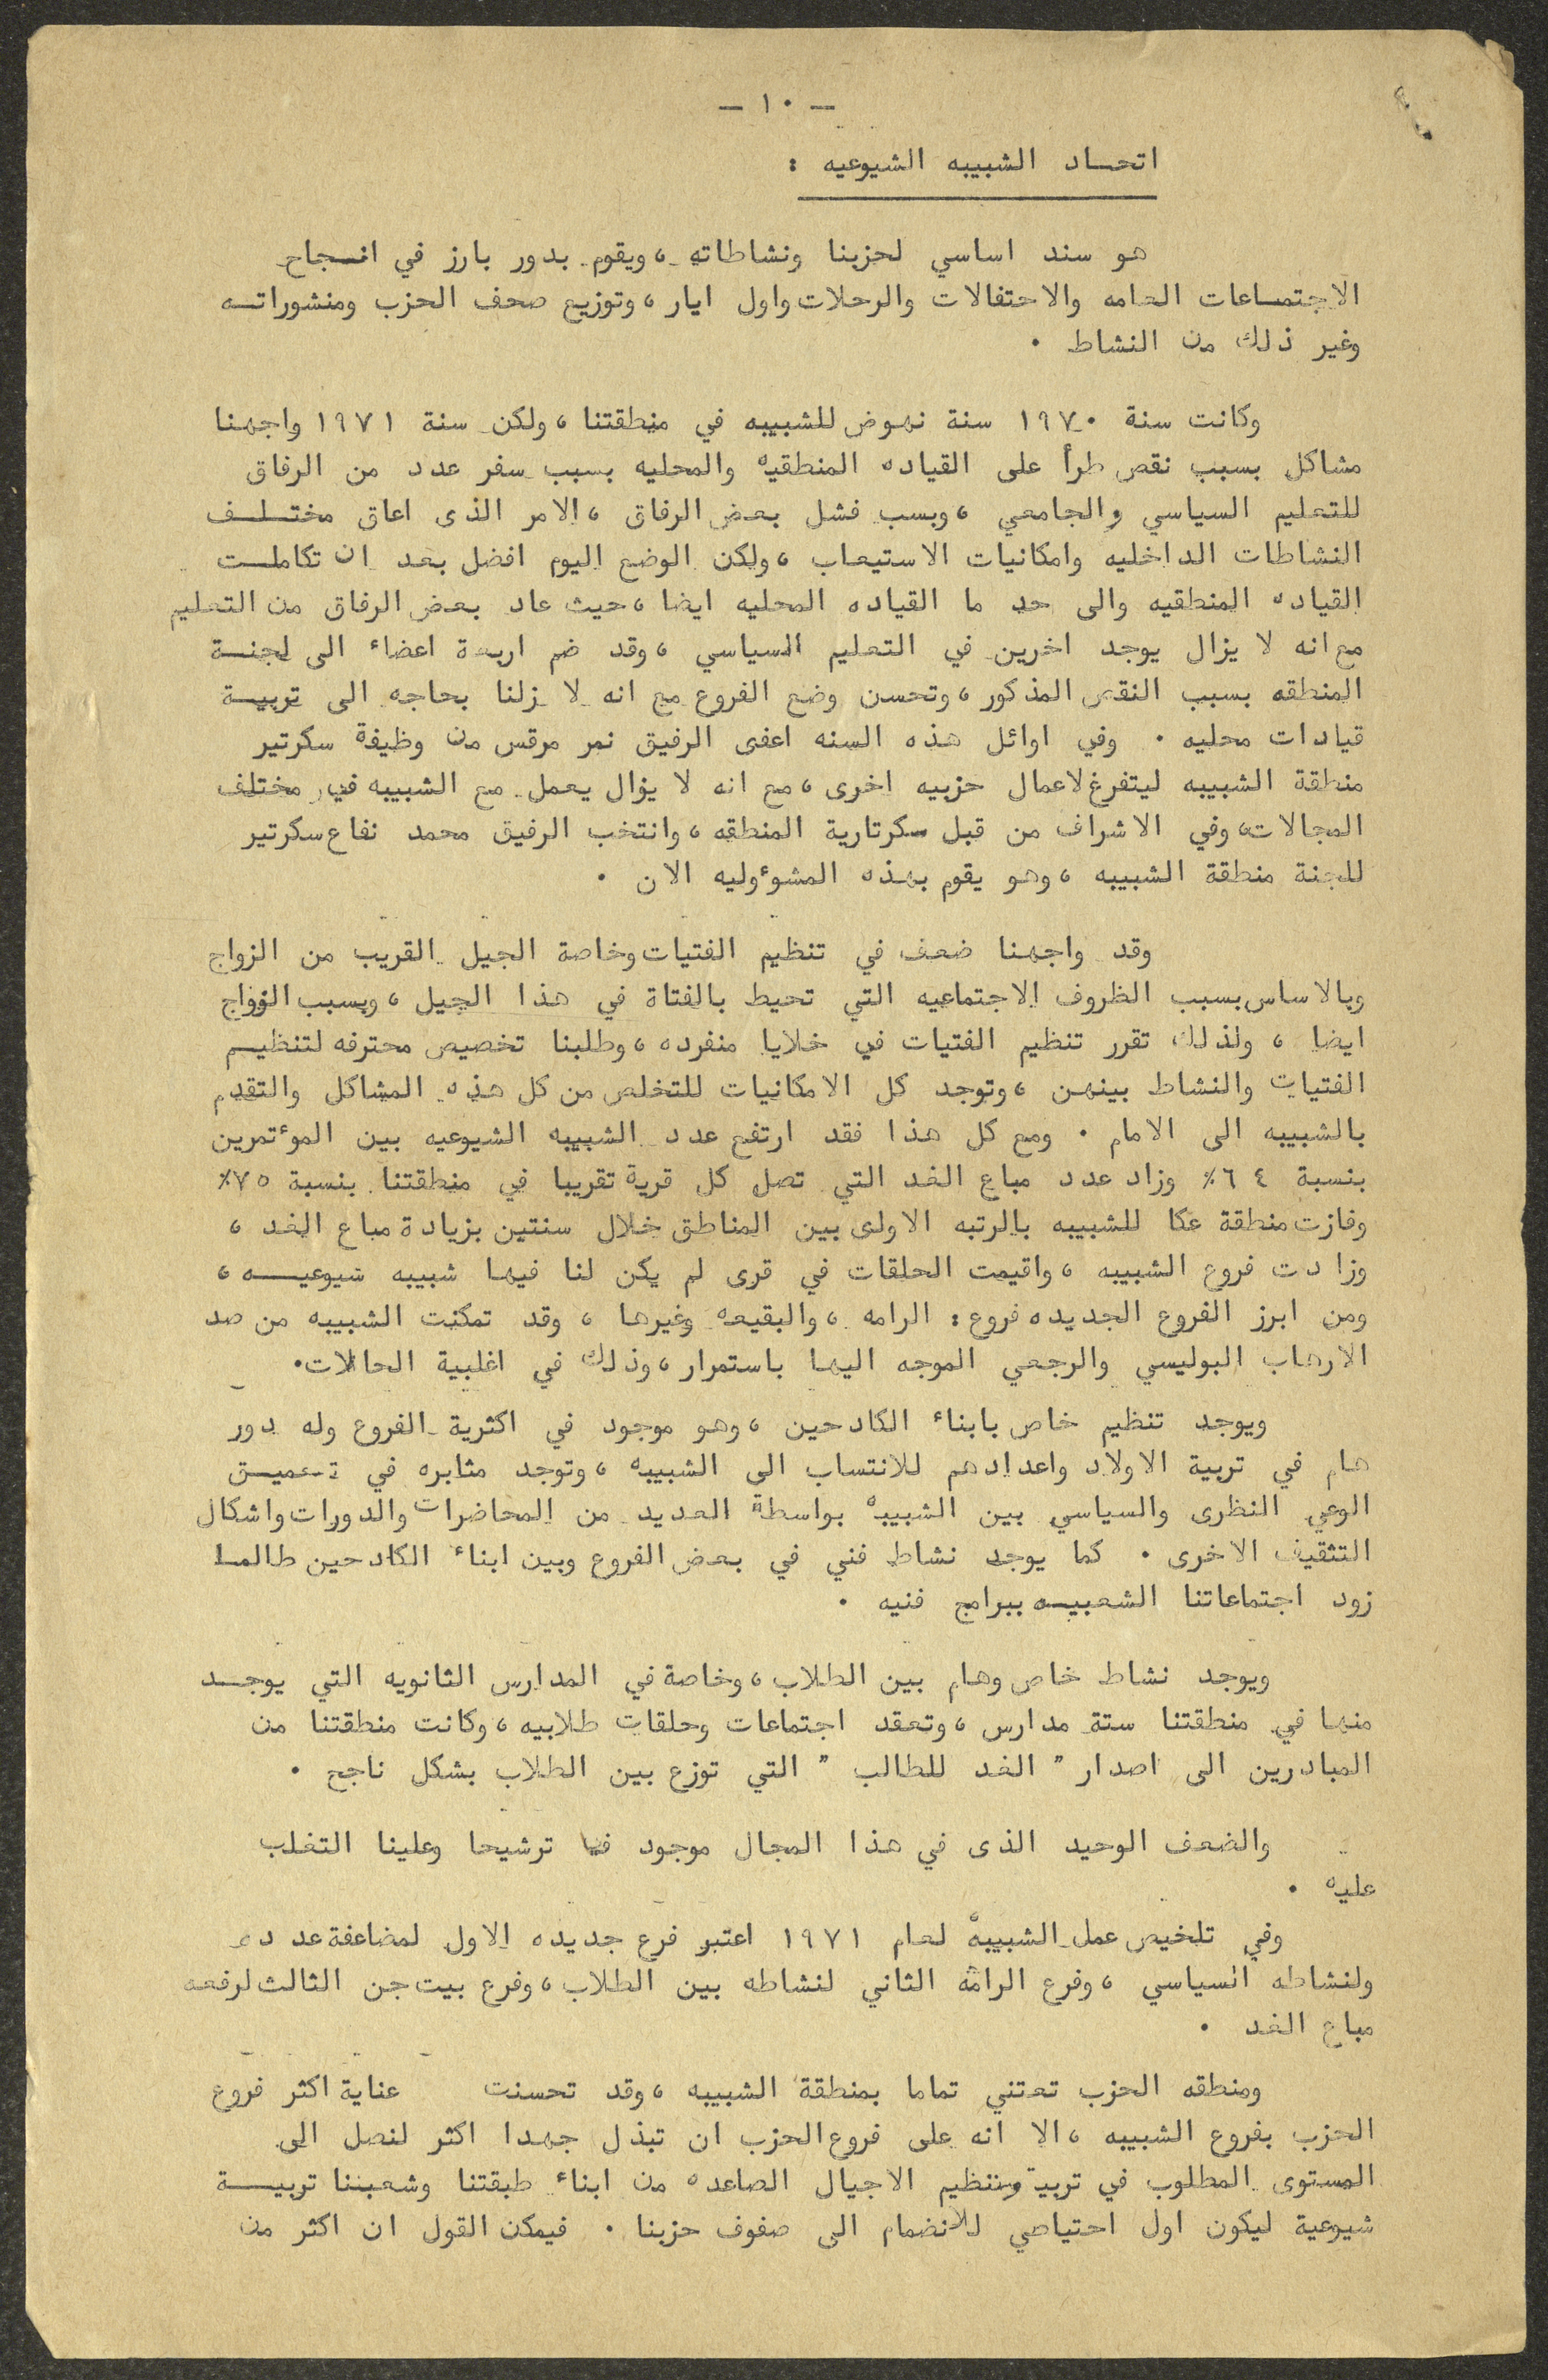 - ١٠ -
اتحاد الشبيبه الشيوعيه :
هو سند اساسي لحزبنا ونشاطاته ، ويقوم بدور بارز في انجاح
الاجتماعات العامه والاحتفالات والرحلات واول ايار ، وتوزيع صحف الحزب ومنشوراته
وغير ذلك من النشاط .
وكانت سنة ١٩٧٠ سنة نهوض للشبيبه في منطقتنا ، ولكن سنة ١٩٧١ واجهنا
مشاكل بسبب نقص طرأ على القياده المنطقيه والمحليه بسبب سفر عدد من الرفاق
للتعليم السياسي والجامعي ، وبسب فشل بعض الرفاق ، الامر الذى اعاق مختلف
النشاطات الداخليه وامكانيات الاستيعاب ، ولكن الوضع اليوم افضل بعد ان تكاملت
القياده المنطقيه والى حد ما القياده المحليه ايضا ، حيث عاد بعض الرفاق من التعليم
مع انه لا يزال يوجد اخرين في التعليم السياسي ، وقد ضم اربعة اعضاء الى لجنة
المنطقه بسبب النقص المذكور ، وتحسن وضع الفروع مع انه لا زلنا بحاجه الى تربية
قيادات محليه . وفي اوائل هذه السنه اعفى الرفيق نمر مرقس من وظيفة سكرتير
منطقة الشبيبه ليتفرغ لاعمال حزبيه اخرى ، مع انه لا يزال يعمل مع الشبيبه في مختلف
المجالات ، وفي الاشراف من قبل سكرتارية المنطقه ، وانتخب الرفيق محمد نفاع سكرتير
للجنة منطقة الشبيبه ، وهو يقوم بهذه المشوٴوليه الان .
وقد واجهنا ضعف في تنظيم الفتيات وخاصة الجيل القريب من الزواج
وبالاساس بسبب الظروف الاجتماعيه التي تحيط بالفتاة في هذا الجيل ، وبسبب الزواج
ايضا ، ولذلك تقرر تنظيم الفتيات في خلايا منفرده ، وطلبنا تخصيص محترفه لتنظيم
الفتيات والنشاط بينهن ، وتوجد كل الامكانيات للتخلص من كل هذه المشاكل والتقدم
بالشبيبه الى الامام . ومع كل هذا فقد ارتفع عدد الشبيبه الشيوعيه بين الموٴتمرين
بنسبة ٦٤٪ وزاد عدد مباع الغد التي تصل كل قرية تقريبا في منطقتنا بنسبة ٧٥٪
وفازت منطقة عكا للشبيبه بالرتبه الاولى بين المناطق خلال سنتين بزيادة مباع الغد ،
وزادت فروع الشبيبه ، واقيمت الحلقات في قرى لم يكن لنا فيها شبيبه شيوعيه ،
ومن ابرز الفروع الجديده فروع : الرامه ، والبقيعه وغيرها ، وقد تمكنت الشبيبه من صد
الارهاب البوليسي والرجعي الموجه اليها باستمرار ، وذلك في اغلبية الحالات .
ويوجد تنظيم خاص بابناء الكادحين ، وهو موجود في اكثرية الفروع وله دور
هام في تربية الاولاد واعدادهم للانتساب الى الشبيبه ، وتوجد مثابره في تعميق
الوعي النظرى والسياسي بين الشبيبه بواسطة العديد من المحاضرات والدورات واشكال
التثقيف الاخرى . كما يوجد نشاط فني في بعض الفروع وبين ابناء الكادحين طالما
زود اجتماعاتنا الشعبيه ببرامج فنيه .
ويوجد نشاط خاص وهام بين الطلاب ، وخاصة في المدارس الثانويه التي يوجد
منها في منطقتنا ستة مدارس ، وتعقد اجتماعات وحلقات طلابيه ، وكانت منطقتنا من
المبادرين الى اصدار " الغد للطالب " التي توزع بين الطلاب بشكل ناجح .
والضعف الوحيد الذى في هذا المجال موجود في ترشيحا وعلينا التغلب
عليه .
وفي تلخيص عمل الشبيبة لعام ١٩٧١ اعتبر فرع جديده الاول لمضاعفة عدده
ولنشاطه السياسي ، وفرع الرامة الثاني لنشاطه بين الطلاب ، وفرع بيت جن الثالث لرفعه
مباع الغد .
ومنطقه الحزب تعتني تماما بمنطقة الشبيبه ، وقد تحسنت عناية اكثر فروع
الحزب بفروع الشبيبه ، الا انه على فروع الحزب ان تبذل جهدا اكثر لنصل الى
المستوى المطلوب في تربية وتنظيم الاجيال الصاعده من ابناء طبقتنا وشعبنا تربية
شيوعية ليكون اول احتياصي للانضمام الى صفوف حزبنا . فيمكن القول ان اكثر من